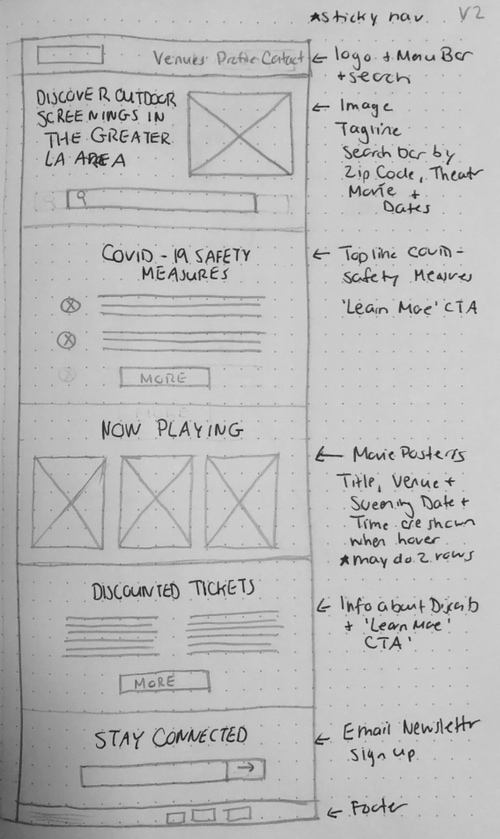 *Sticky nav.
V2
Venues Profile Contact
← logo + Menu Bar
+ search
DISCOVER OUTDOOR
SCREENINGS IN
THE GREATER
LA AREA
← Image
Tagline
Search bar by
Zip Code, Theatr
Movie +
Dates
COVID-19 SAFETY
MEASURES
MORE
← Top line covid-
safety Measures
'Learn More' CTA
NOW PLAYING
← Movie Posters
Title, Venue +
Screening Date +
Time are shown
when hover
*may do 2 rows
DISCOUNTED TICKETS
MORE
← Info about
+ 'Learn More'
CTA'
STAY CONNECTED
→
← Email Newslettr
Sign up
← Footer